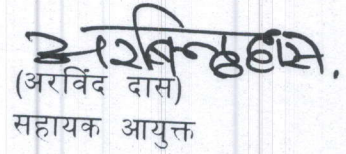 अरविन्द दास.
(अरविंद दास)
सहायक आयुक्त